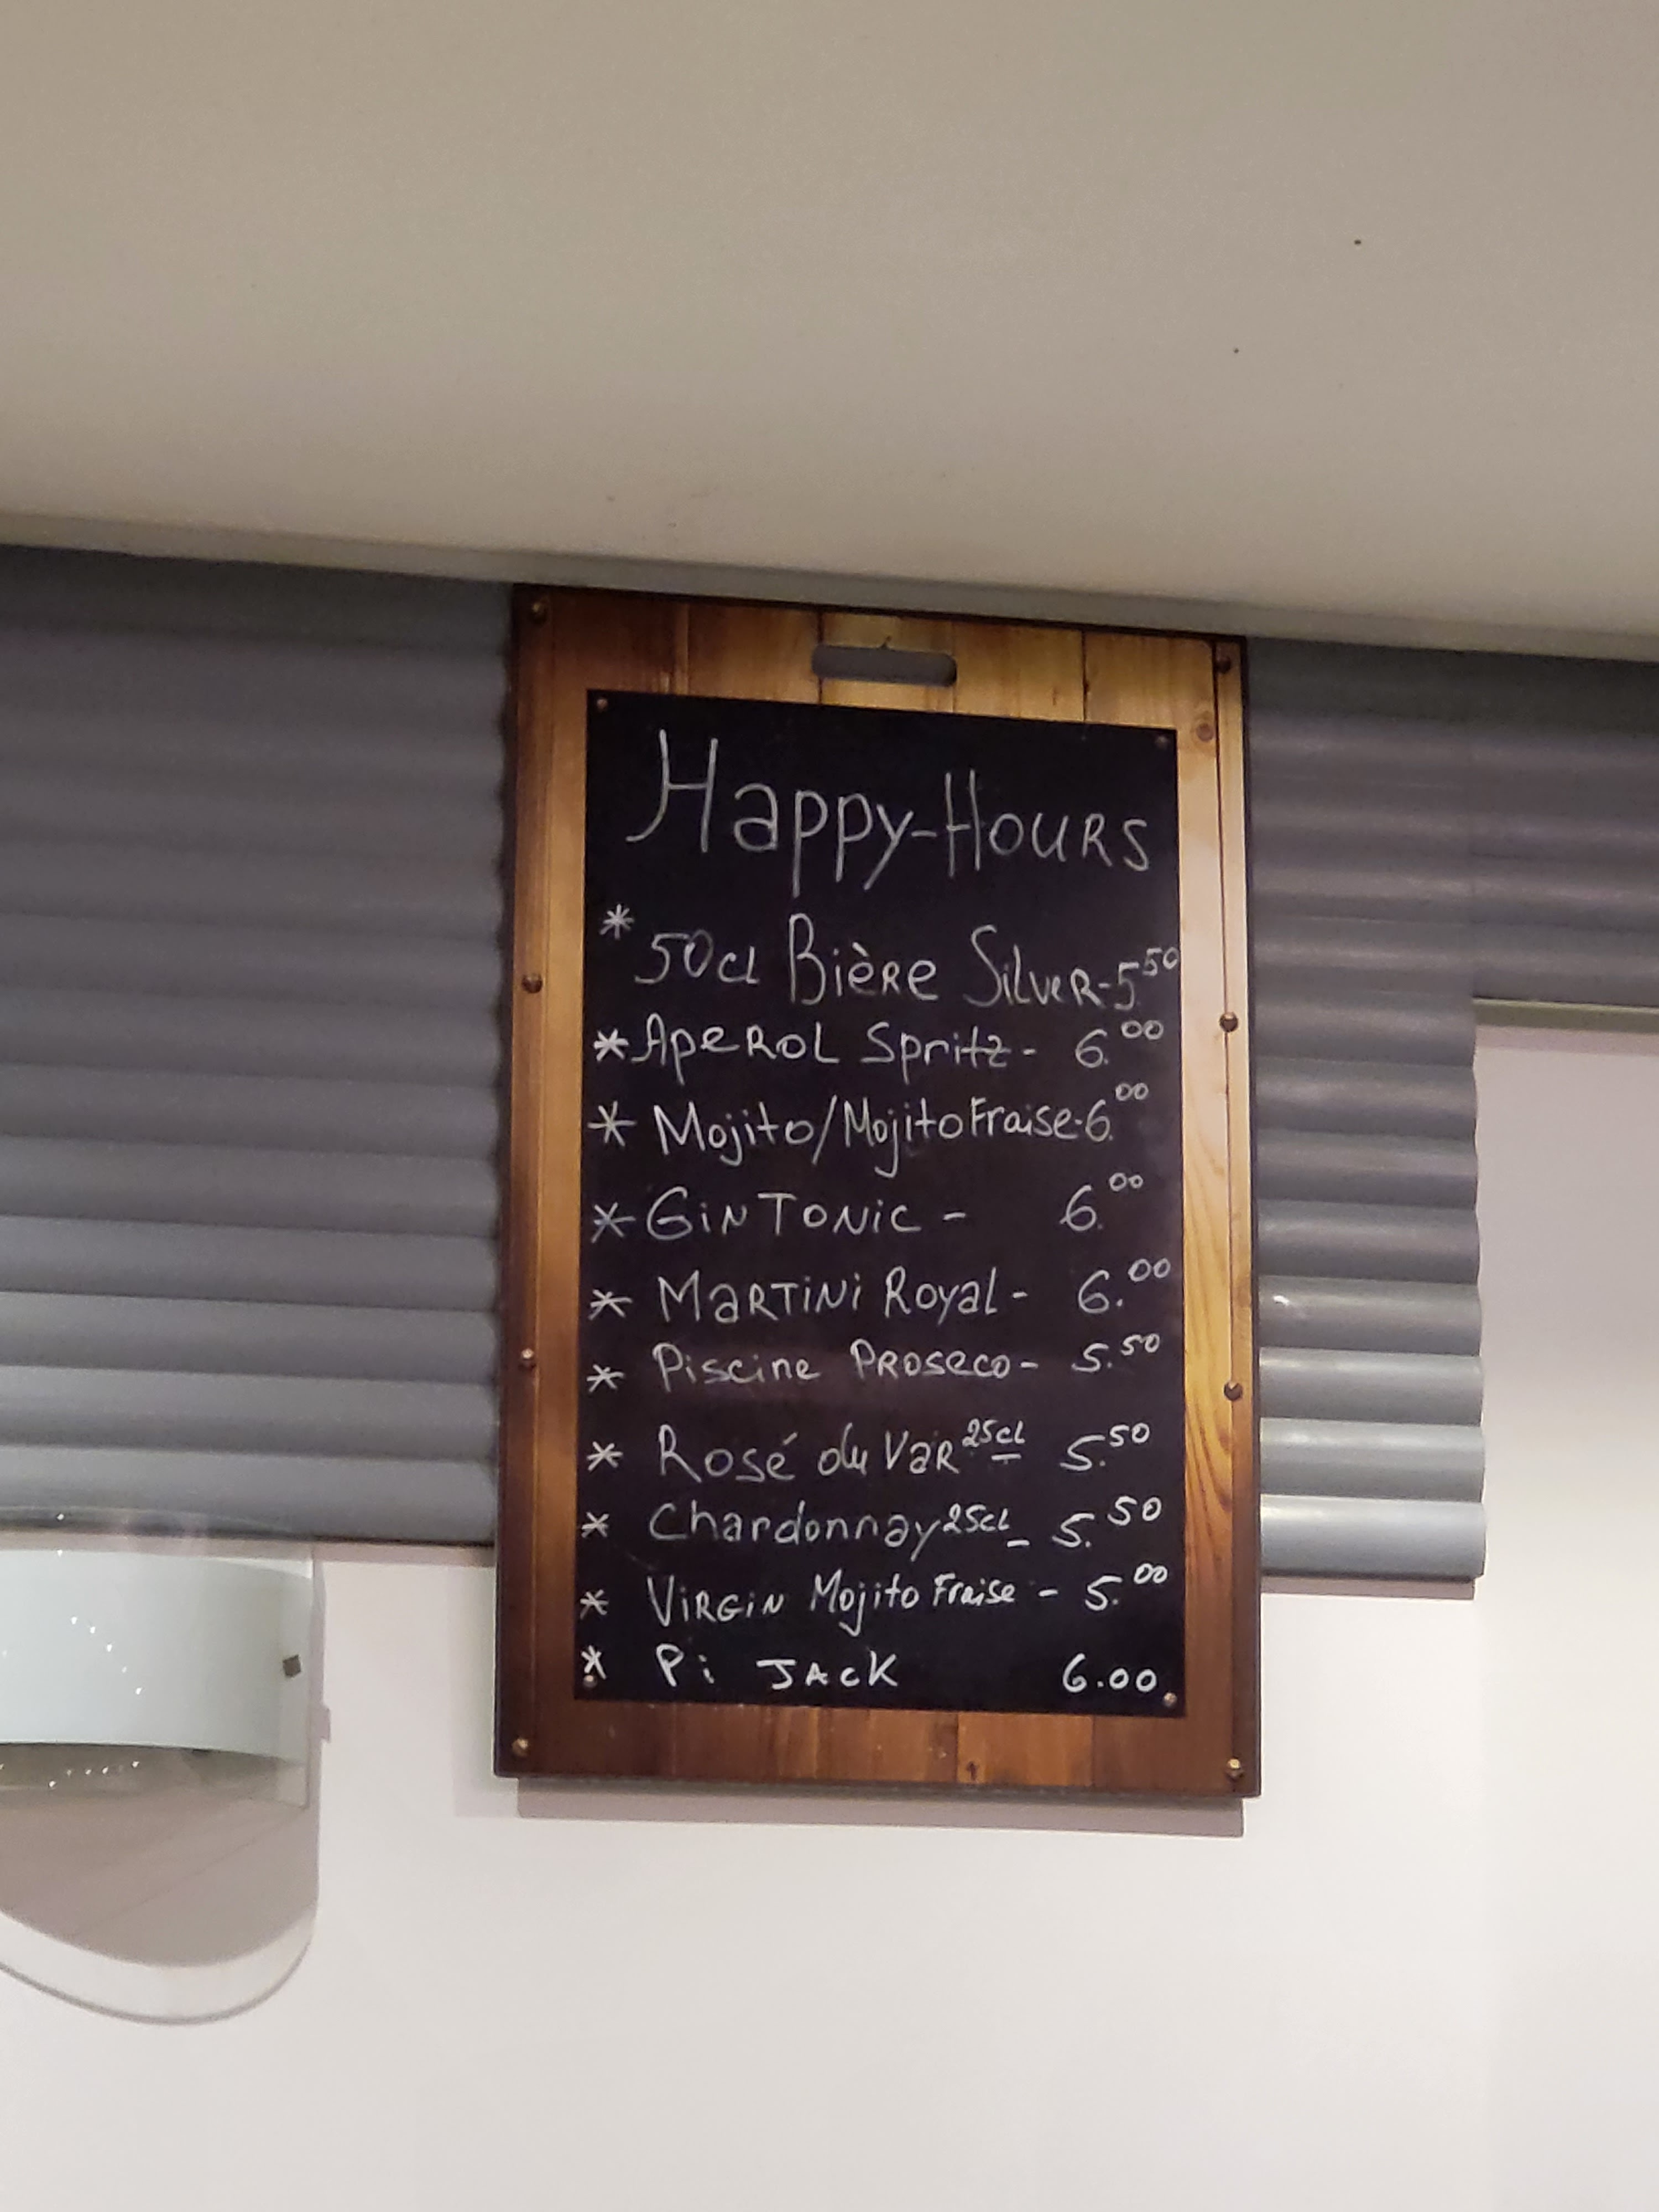 Happy-Hours
* 50cl Bière Silver-5.50
* Aperol Spritz - 6.00
* Mojito/Mojito Fraise-6.00
* Gin Tonic - 6.00
* Martini Royal - 6.00
* Piscine Proseco - 5.50
* Rosé du Var 25cl - 5.50
* Chardonnay 25cl - 5.50
* Virgin Mojito Fraise - 5.00
* Pi JACK 6.00